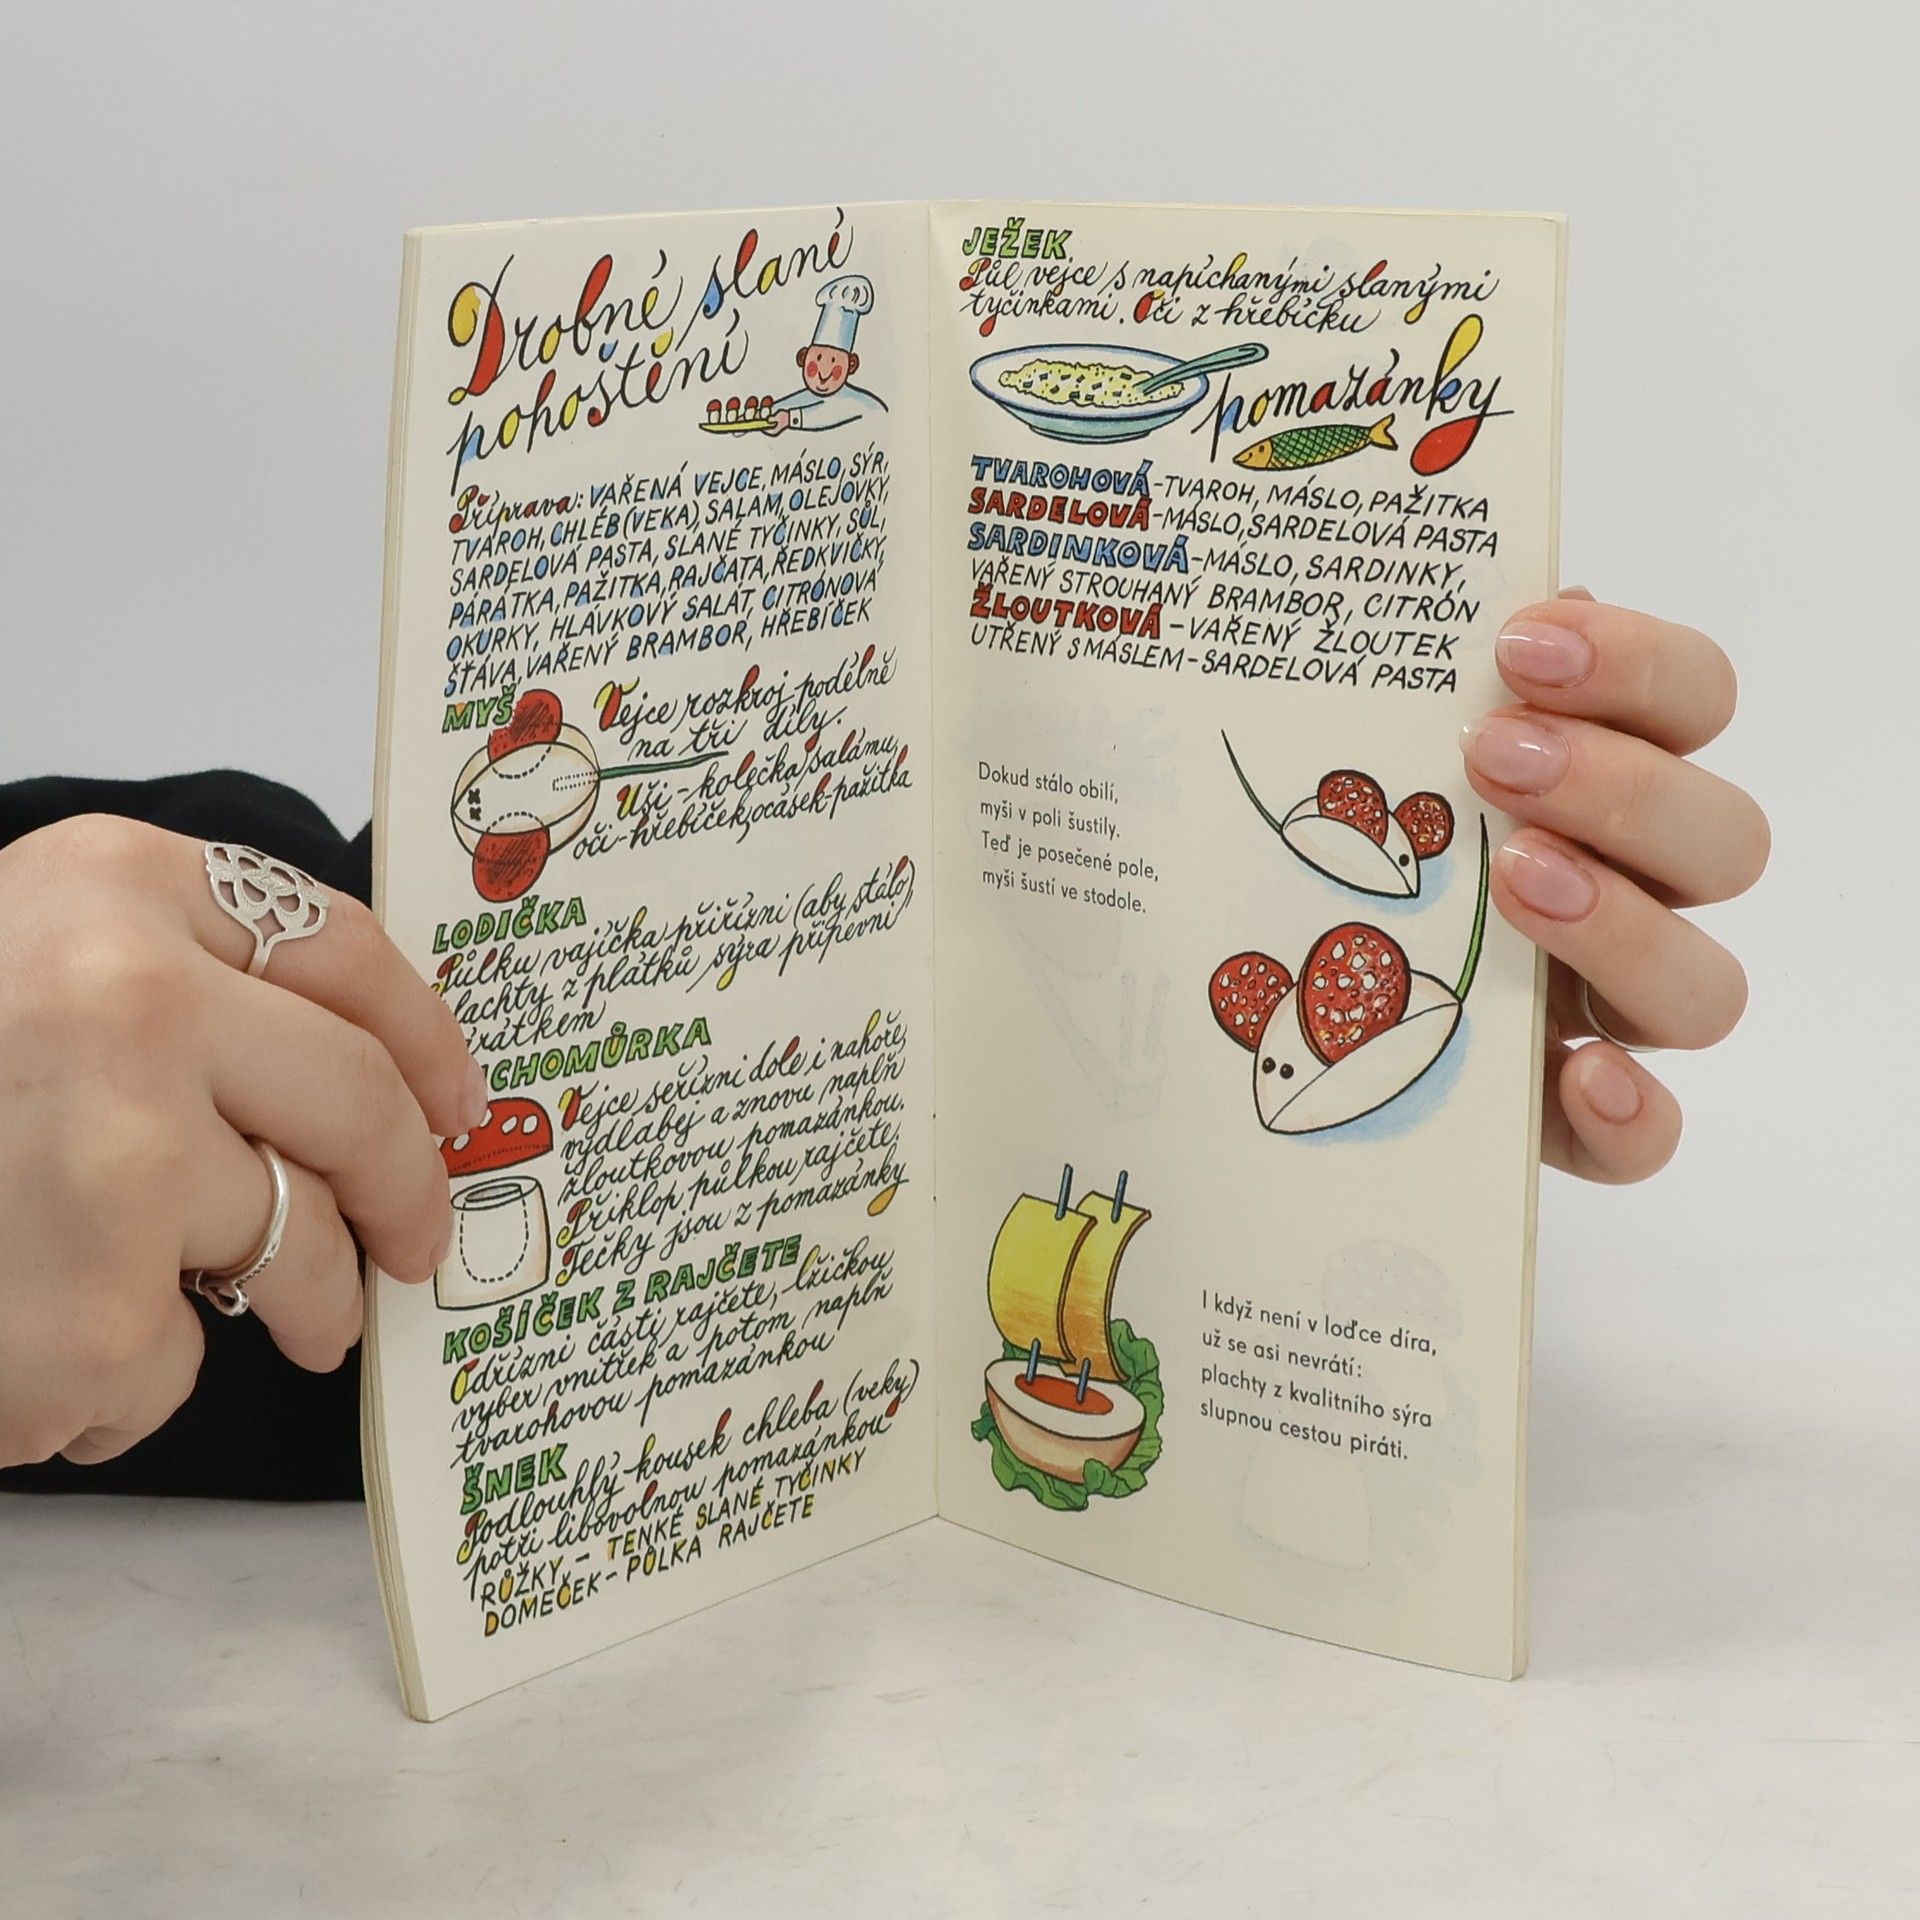 Drobné slané
pohoštění
Příprava: VAŘENÁ VEJCE, MÁSLO, SÝR,
TVAROH, CHLÉB (VEKA), SALAM, OLEJOVKY,
SARDELOVÁ PASTA, SLANÉ TYČINKY, SŮL,
PÁRÁTKA, PAŽITKA, RAJČATA, ŘEDKVIČKY,
OKURKY, HLÁVKOVÝ SALÁT, CITRÓNOVÁ
ŠŤÁVA, VAŘENÝ BRAMBOR, HŘEBÍČEK
MYŠ
Vejce rozkroj podélně
na tři díly.
Uši - kolečka salámu,
oči - hřebíček, ocásek - pažitka
LODIČKA
Půlku vajíčka přiřízni (aby stálo)
lachty z plátků sýra připevni
rátkem
CHOMŮRKA
Vejce seřízni dole i nahoře,
vydlabej a znovu naplň
žloutkovou pomazánkou.
Přiklop půlkou rajčete.
Tečky jsou z pomazánky
KOŠÍČEK Z RAJČETE
Odřízni části rajčete, - lžičkou
vyber vnitřek a potom naplň
tvarohovou pomazánkou
ŠNEK
Podlouhlý kousek chleba (veky)
potři libovolnou pomazánkou
RŮŽKY - TENKÉ SLANÉ TYČINKY
DOMEČEK - PŮLKA RAJČETE
JEŽEK
Půl vejce s napíchanými slanými
tyčinkami. Oči z hřebíčku
pomazánky
TVAROHOVÁ - TVAROH, MÁSLO, PAŽITKA
SARDELOVÁ - MÁSLO, SARDELOVÁ PASTA
SARDINKOVÁ - MÁSLO, SARDINKY,
VAŘENÝ STROUHANÝ BRAMBOR, CITRÓN
ŽLOUTKOVÁ - VAŘENÝ ŽLOUTEK
UTŘENÝ S MÁSLEM - SARDELOVÁ PASTA
Dokud stálo obilí,
myši v poli šustily.
Teď je posečené pole,
myši šustí ve stodole.
I když není v loďce díra,
už se asi nevrátí:
plachty z kvalitního sýra
slupnou cestou piráti.